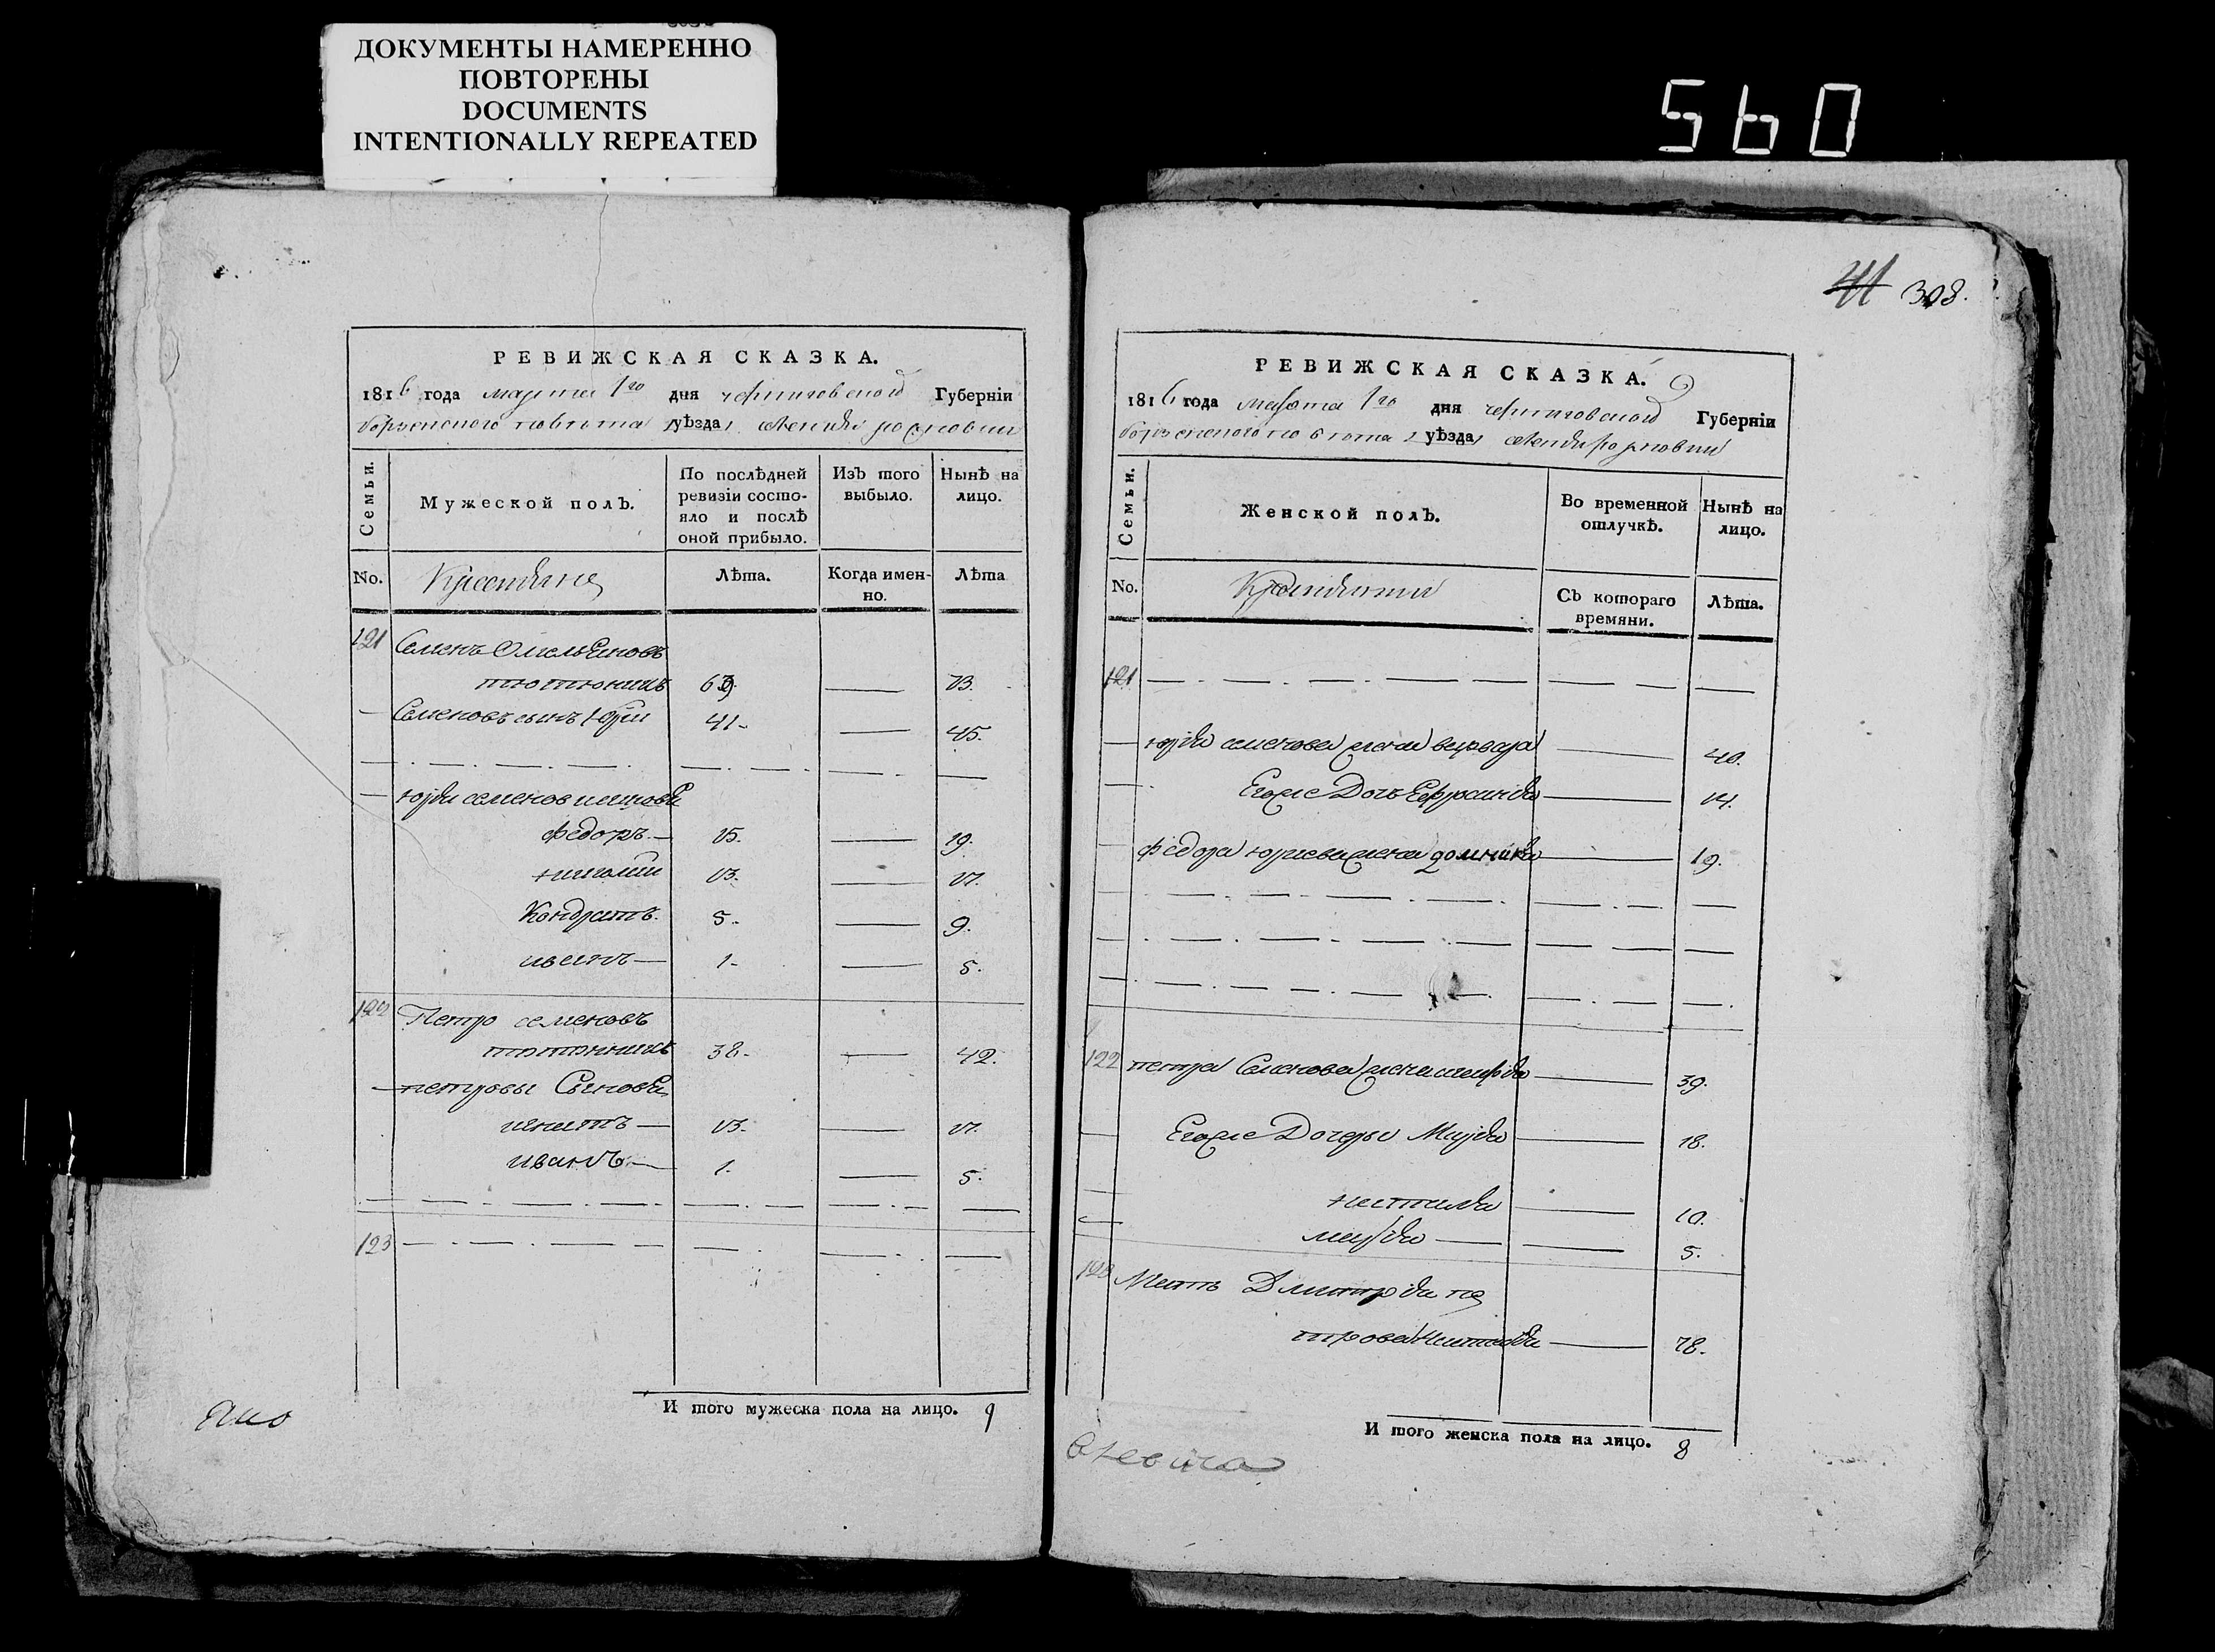 ДОКУМЕНТЫ НАМЕРЕННО
ПОВТОРЕНЫ
DOCUMENTS
INTENTIONALLY REPEATED
560
РЕВИЖСКАЯ СКАЗКА.
1816 года марта 1го дня черниговской Губерніи
борзенского повѣта уѣзда
Семьи.
Мужеской полъ.
По послѣдней ревизіи состояло и послѣ оной прибыло.
Изъ того выбыло.
Нынѣ на лицо.
No.
Лѣта.
Когда именно.
Лѣта
121 Семенъ Омельяновъ
тютюникъ 69. 73.
Семеновъ сынъ Юрій 41. 45.
Юрія семенова
федоръ 15. 19.
13. 17.
Кондратъ. 5. 9.
иванъ 1. 5.
122 Петро семеновъ
тютюникъ 38. 42.
петровы Сыновья
игнатъ 13. 17.
иванъ 1. 5.
123
И того мужеска пола на лицо. 9
308.
РЕВИЖСКАЯ СКАЗКА.
1816 года марта 1го дня черниговской Губерніи
борзенского повѣта уѣзда
Семьи.
Женской полъ.
Во временной отлучкѣ.
Нынѣ на лицо.
No.
Съ котораго времяни.
Лѣта.
121
Юрія семенова жена варвара 40.
Егоже Дочь Ефросинія 14.
федора юриева жена домникія 19.
122 петра Семенова жена 39.
Егоже Дочеры Марія 18.
настасія 10.
марія 5.
123 Мать Дмитрія пе
трова 78.
И того женска пола на лицо. 8